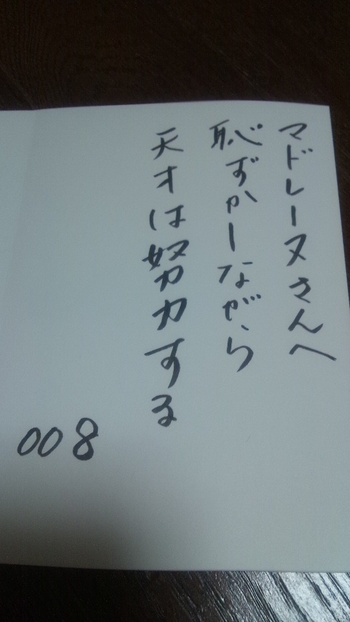 マドレーヌさんへ
恥ずかしながら
天才は努力する
008